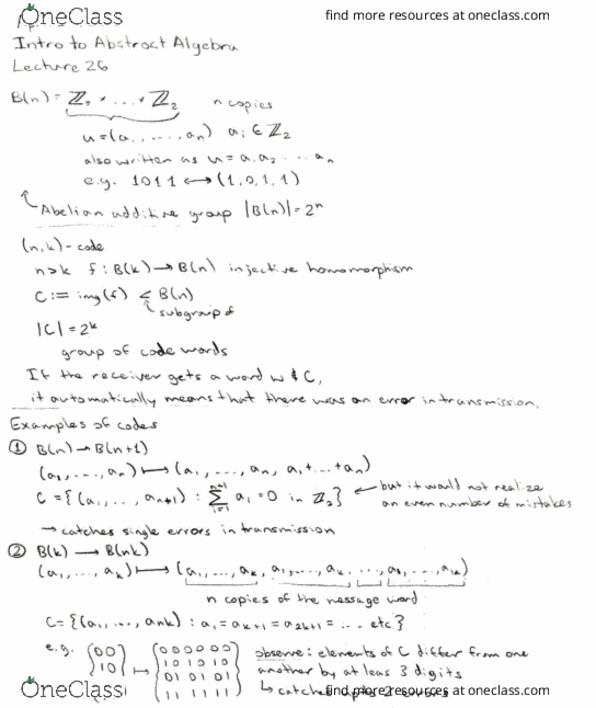 OneClass
find more resources at oneclass.com
Intro to Abstract Algebra
Lecture 26
B(n) = ℤ₂ × ... × ℤ₂ n copies
u = (a₁, ..., aₙ) aᵢ ∈ ℤ₂
also written as u = a₁a₂ ... aₙ
e.g. 1011 ↔ (1,0,1,1)
Abelian additive group |B(n)| = 2ⁿ
(n,k)-code
n>k f: B(k) → B(n) injective homomorphism
C := img(f) ≤ B(n)
subgroup of
|C| = 2ᵏ
group of code words
If the receiver gets a word w ∉ C,
it automatically means that there was an error in transmission.
Examples of codes
① B(n) → B(n+1)
(a₁, ..., aₙ) ↦ (a₁, ..., aₙ, a₁+...+aₙ)
C = {(a₁, ..., aₙ₊₁) : Σᵢ₌₁ⁿ⁺¹ aᵢ = 0 in ℤ₂} ← but it would not realize
an even number of mistakes
→ catches single errors in transmission
② B(k) → B(nk)
(a₁, ..., aₖ) ↦ (a₁, ..., aₖ, a₁, ..., aₖ, ..., a₁, ..., aₖ)
n copies of the message word
C = {(a₁, ..., ank) : a₁ = aₖ₊₁ = a₂ₖ₊₁ = ... etc}
e.g. {00 ↦ {000000 observe: elements of C differ from one
10 101010 another by at least 3 digits
01 01 01 ↳ catches
11 11 11
OneClass
find more resources at oneclass.com